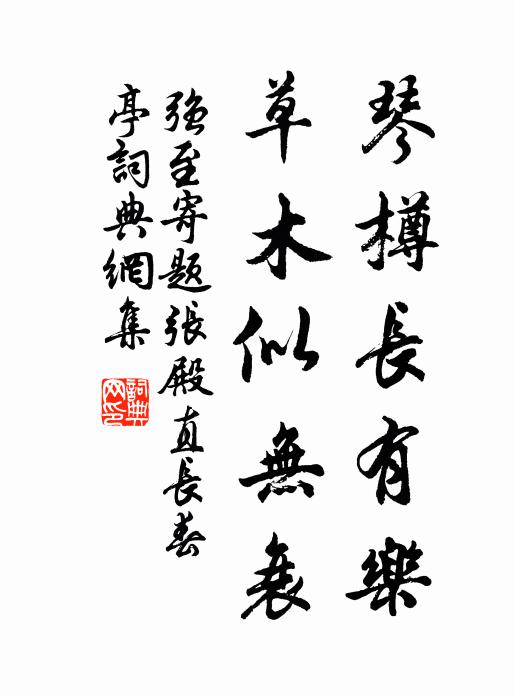 琴樽長有樂
草木似無衰
強至寄題張殿直長春
亭詞典網集
詞典網印